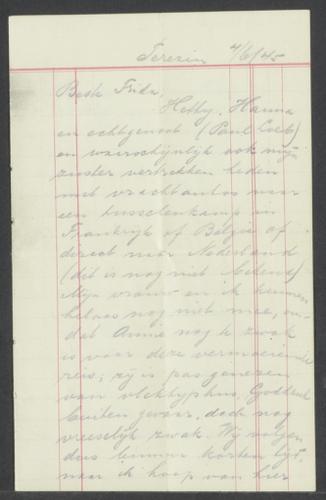 Terezin 4/6/45
Beste Frida,
Hetty, Hanna
en echtgenoot (Paul
en waarschijnlijk ook mijn
zuster vertrekken heden
met vrachtautos naar
een tusschenkamp in
Frankrijk of België of
direct naar Nederland
(dit is nog niet bekend)
Mijn vrouw en ik kunnen
helaas nog niet mee, om-
dat Annie nog te zwak
is voor deze vermoeiende
reis; zij is pas genezen
van vlektyphus. Goddank
buiten gevaar, doch nog
vreeselijk zwak. Wij volgen
dus binnen korten tijd,
maar ik hoop van hier